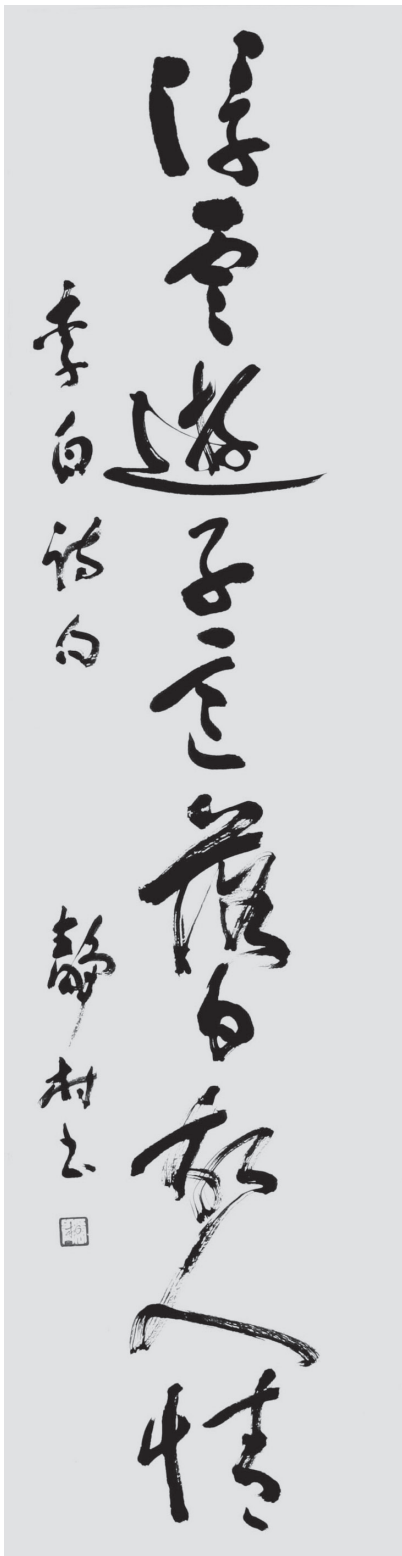 浮雲遊子意落日故人情
李白詩句
静村書